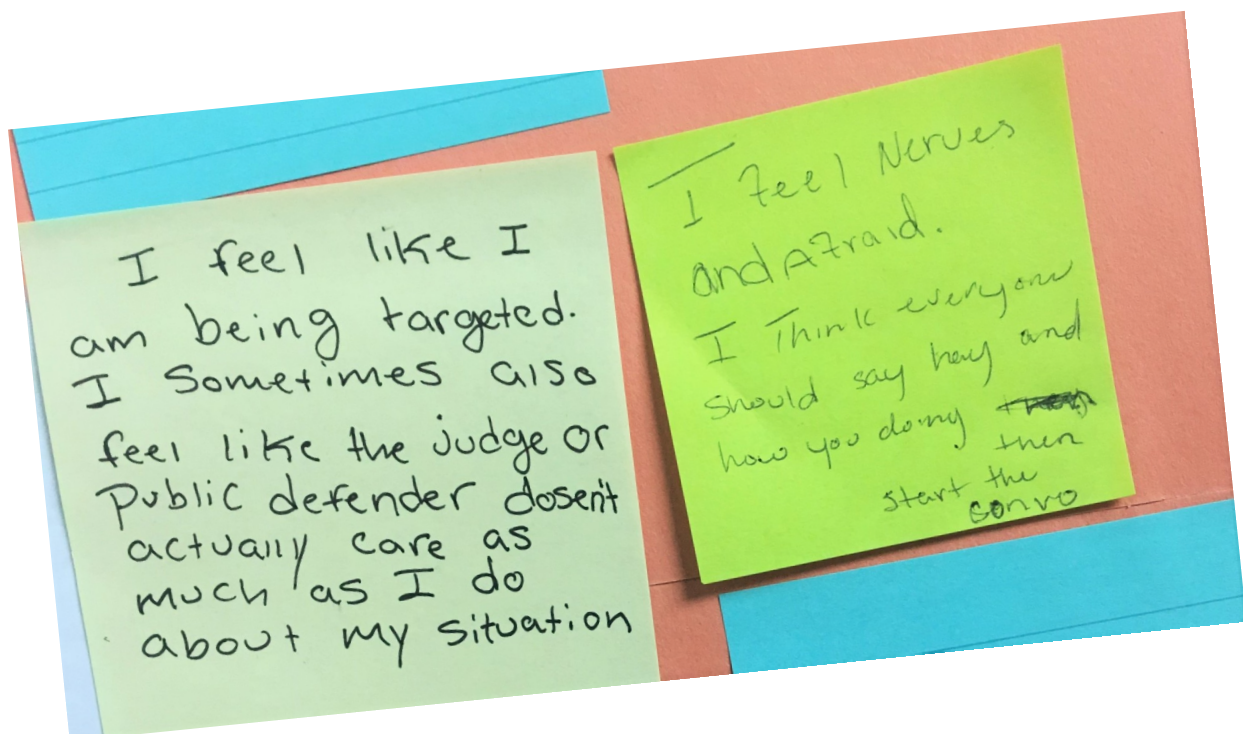 I feel like I
am being targeted.
I Sometimes also
feel like the judge or
Public defender dosen't
actually care as
much as I do
about my situation
I Feel Nerves
and Afraid.
I Think everyone
should say hay and
how you doing
then
start the
convo